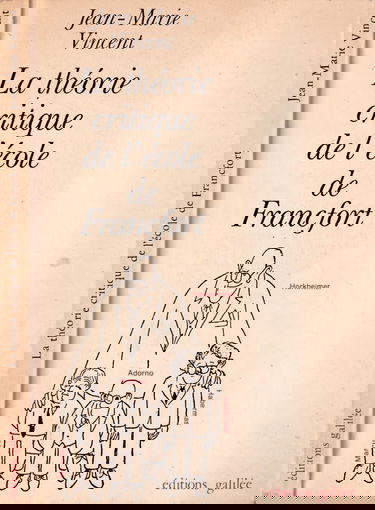 Jean-Marie
Vincent
La théorie
critique
de l'école
de
Francfort
Jean Marie Vincent
La théorie critique de l'école de Francfort
éditions galilée
Horkheimer
Adorno
Habermas
éditions galilée